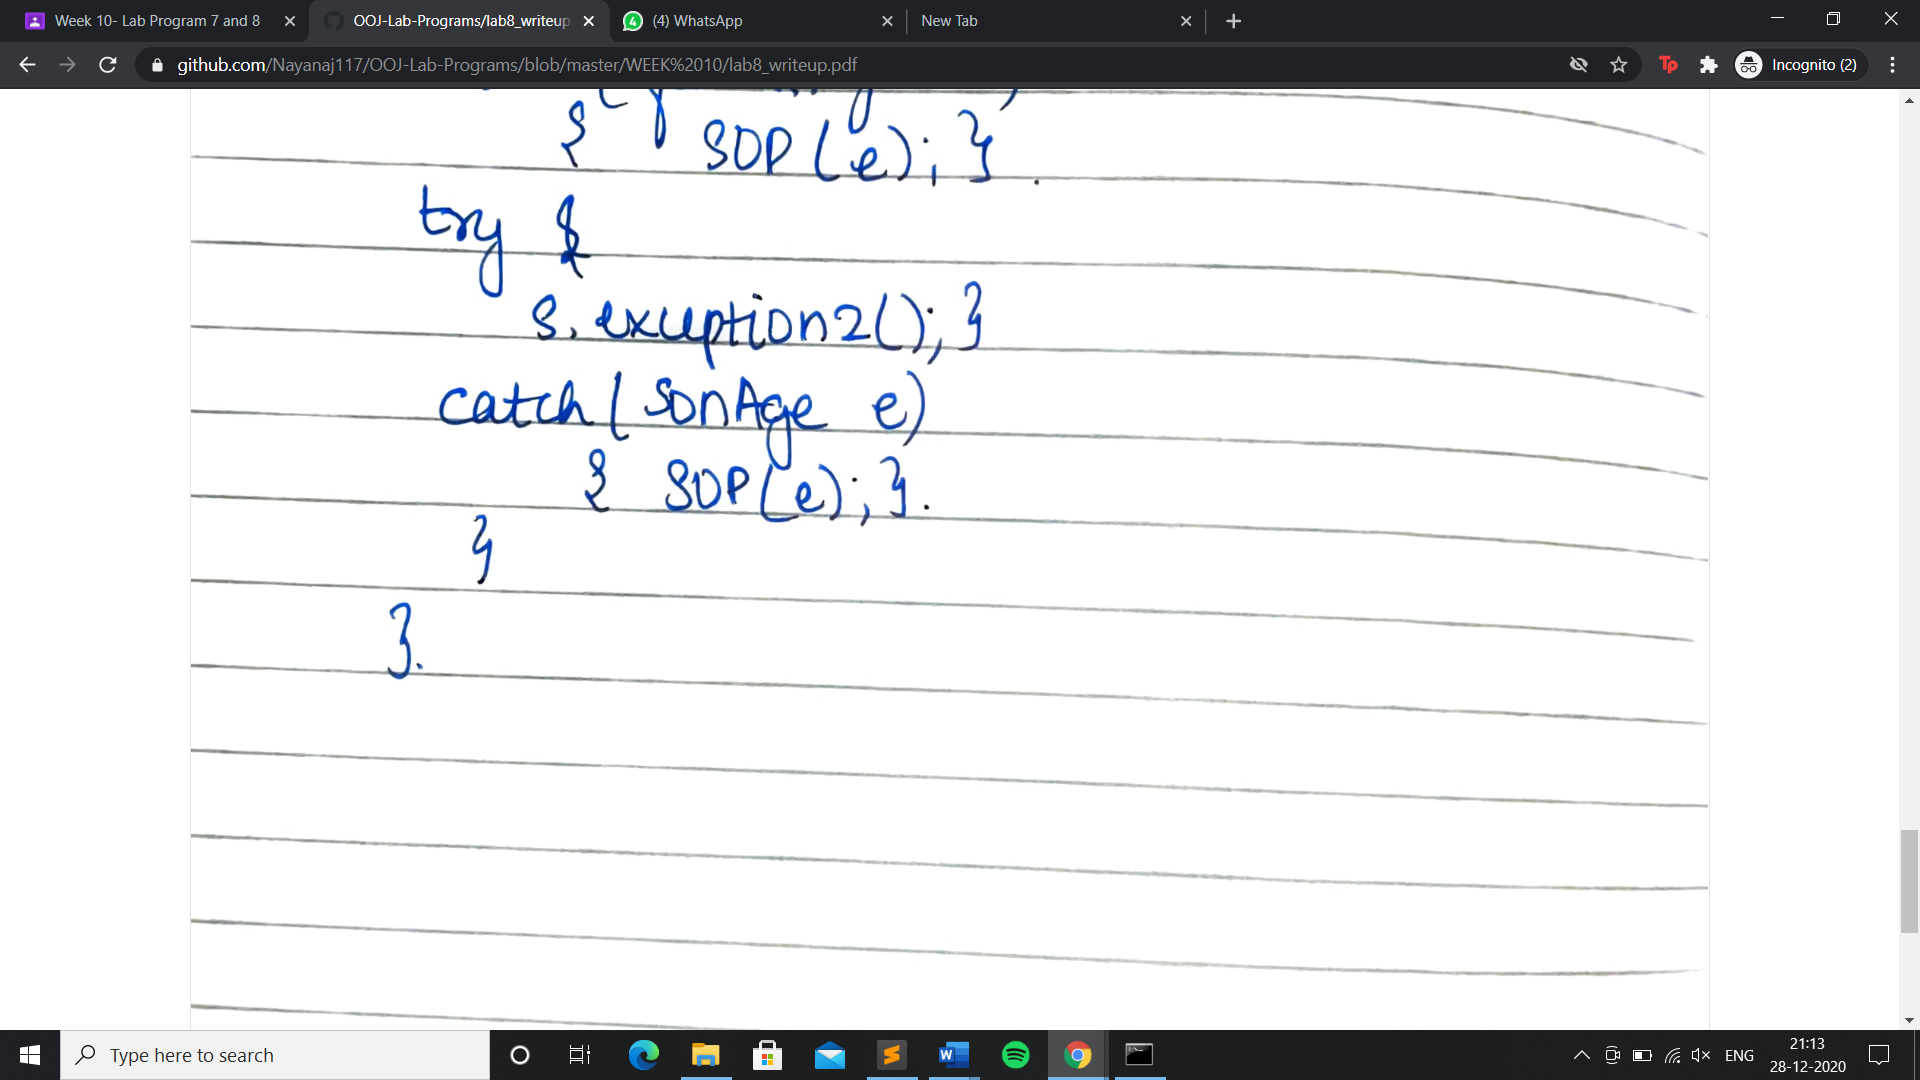 Week 10- Lab Program 7 and 8
OOJ-Lab-Programs/lab8_writeup
(4) WhatsApp
New Tab
github.com/Nayanaj117/OOJ-Lab-Programs/blob/master/WEEK%2010/lab8_writeup.pdf
Incognito (2)
{ SOP(e); } .
try {
s.exception2(); }
catch( SonAge e)
{ SOP(e); }.
}
}.
Type here to search
ENG
21:13
28-12-2020